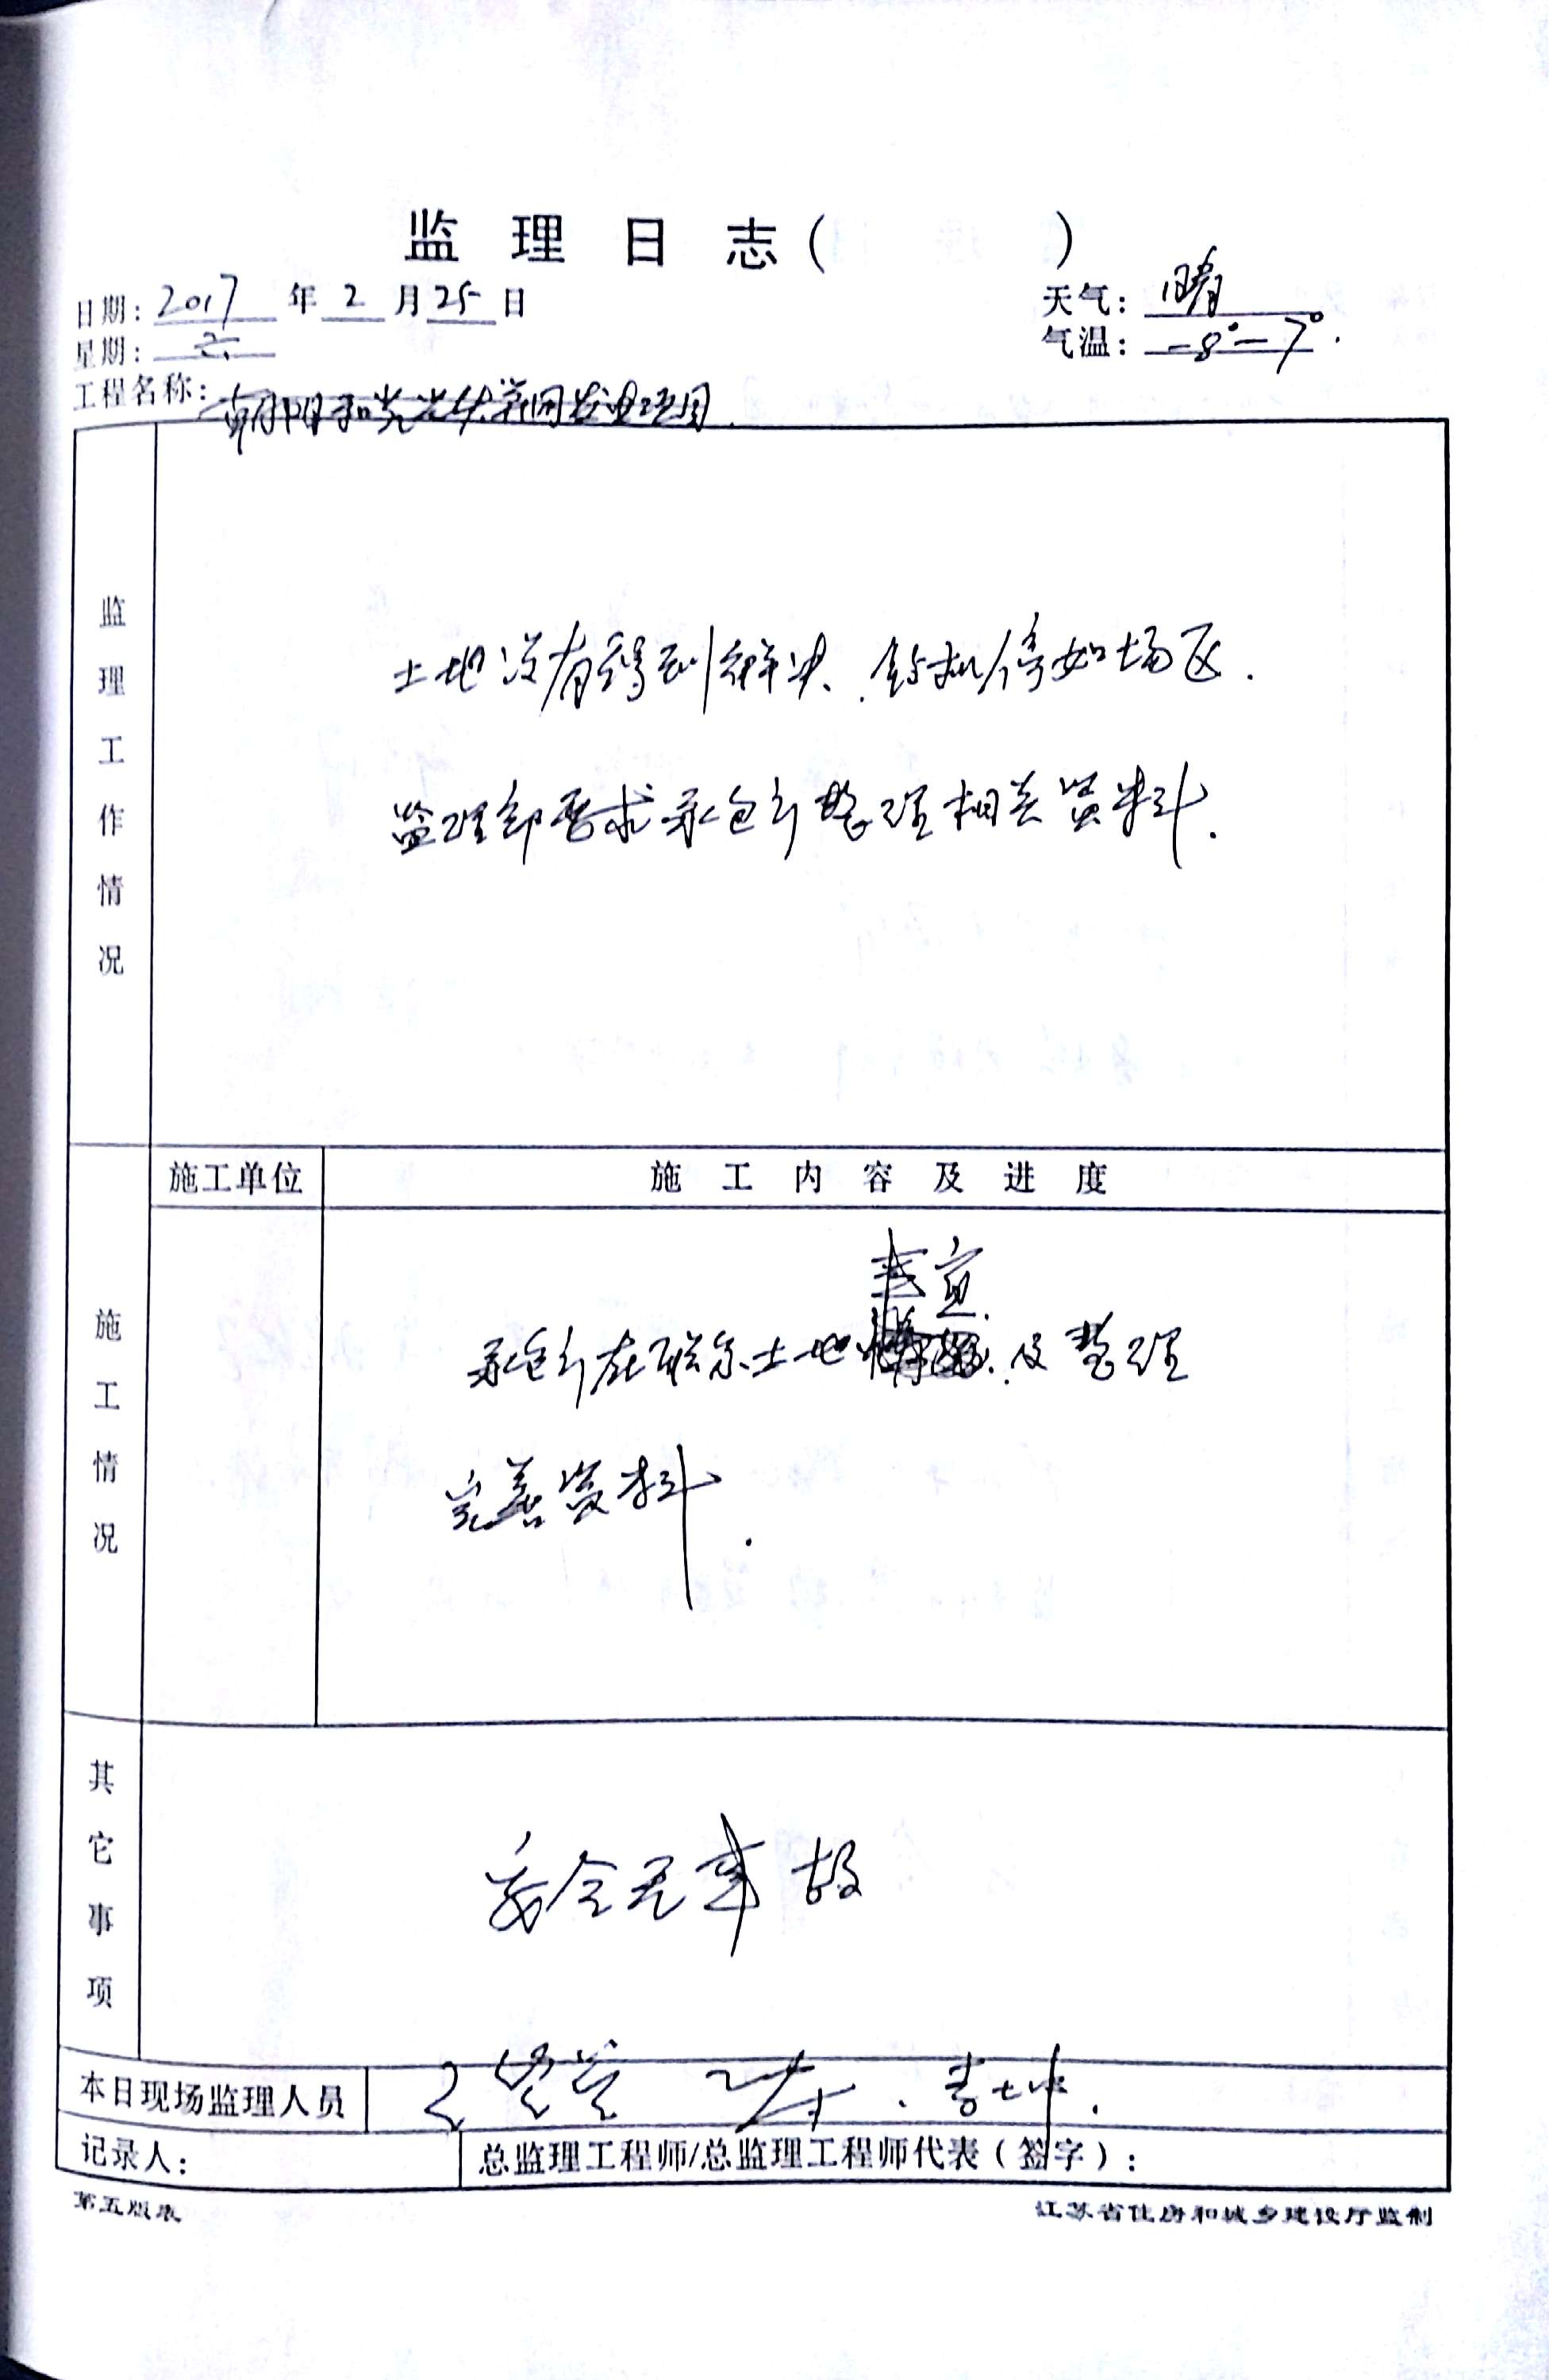 监理日志（ ）
日期：2017年2月25日
天气：晴
星期：六
气温：-8°-7°.
工程名称：朝阳和光光伏并网发电项目.
监理工作情况
土地没有得到解决、钻机停如场区.
监理部要求承包方整理相关资料.
施工单位
施工内容及进度
施工情况
事宜
承包方在联系土地 及整理
完善资料.
其它事项
安全无事故
本日现场监理人员
记录人：
总监理工程师/总监理工程师代表（签字）：
第五版表
江苏省住房和城乡建设厅监制